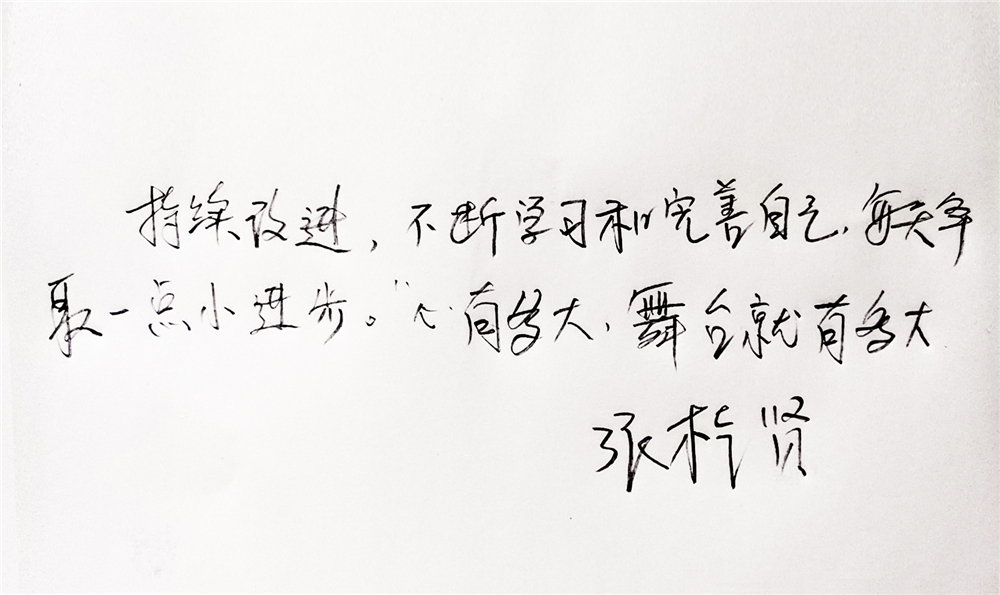 持续改进，不断学习和完善自己，每天争
取一点小进步。“心有多大，舞台就有多大
张 贤